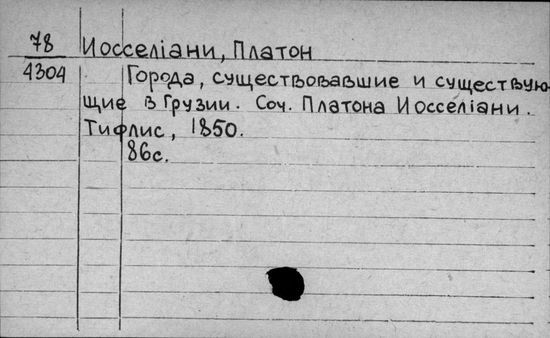 78 Иосселіани, Платон
4304 Города, существовавшие и существую-
щие в Грузии. Соч. Платона Иосселіани.
Тифлис, 1850.
86с.